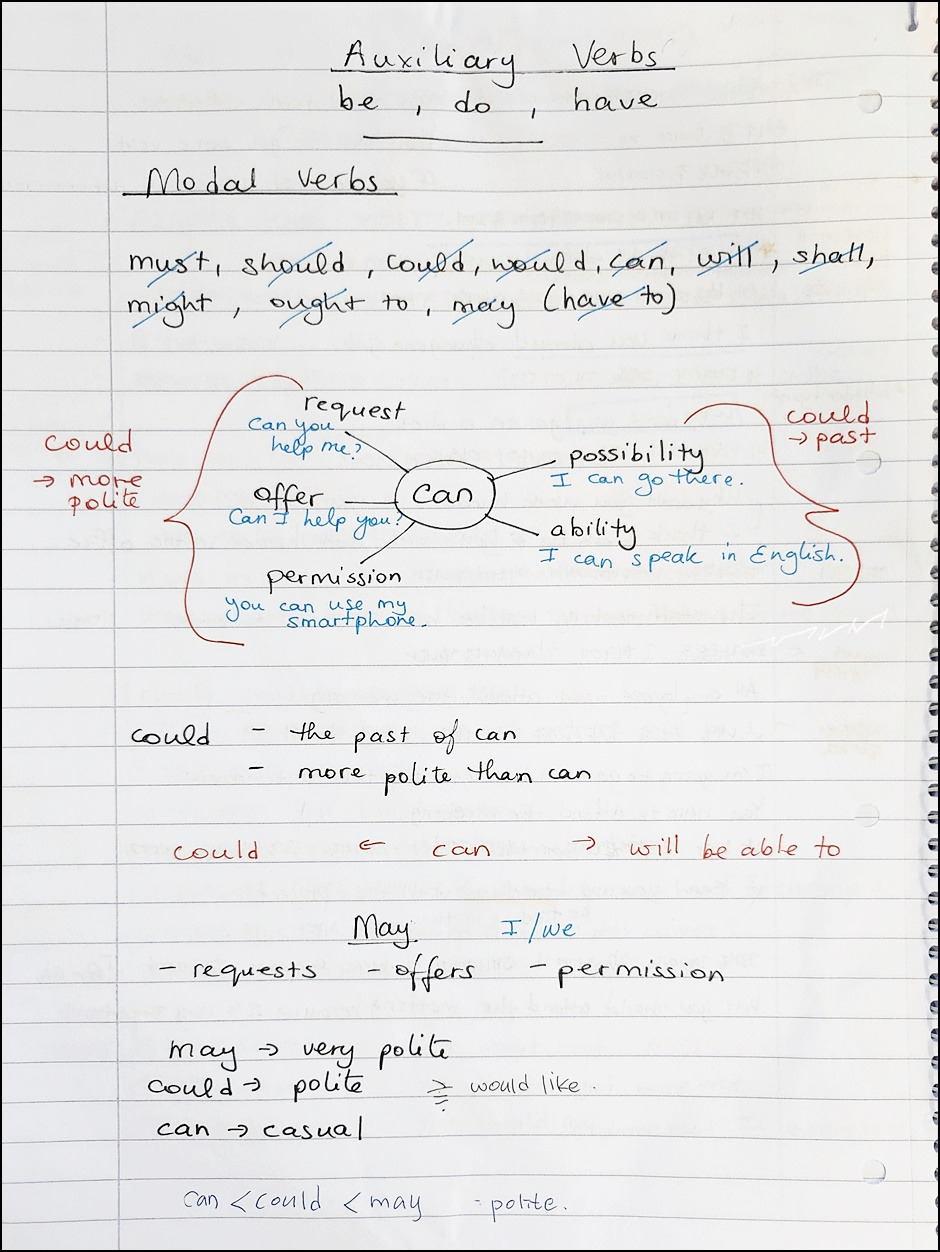 Auxiliary Verbs
be, do, have
Modal Verbs
must, should, could, would, can, will, shall,
might, ought to, may (have to)
could
→ more
polite
request
Can you
help me?
offer
Can I help you?
permission
you can use my
smartphone.
can
possibility
I can go there.
ability
I can speak in English.
could
→ past
could - the past of can
- more polite than can
could ← can → will be able to
May I/we
- requests - offers - permission
may → very polite
could → polite would like.
can → casual
can < could < may - polite.